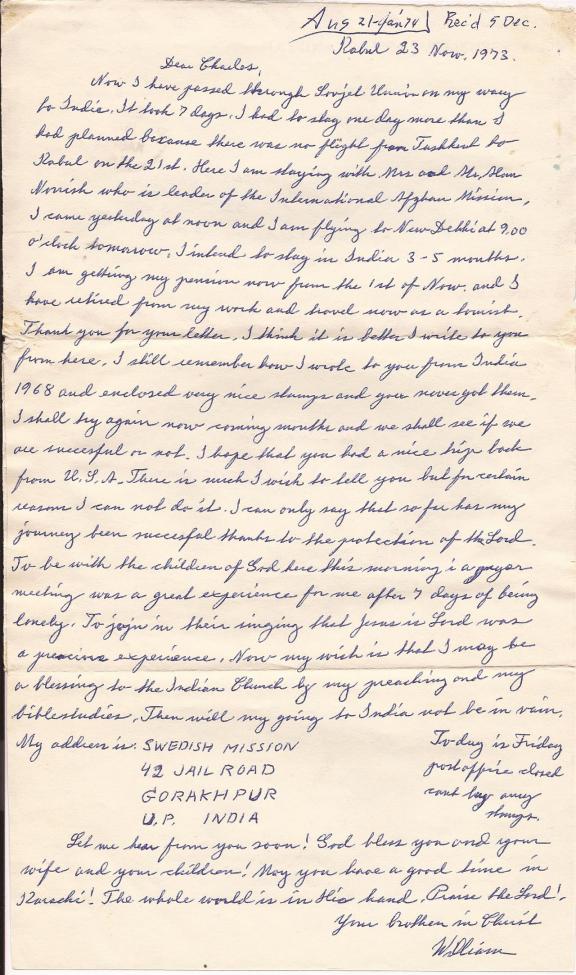 Aug 21-Jan 74 Rec'd 5 Dec.
Kabul 23 Nov. 1973.
Dear Charles,
Now I have passed through Sovjet Union on my way
to India. It took 7 days. I had to stay one day more than I
had planned because there was no flight from Tashkent to
Kabul on the 21st. Here I am staying with Mrs and Mr. Alan
Norrish who is leader of the International Afghan Mission.
I came yesterday at noon and I am flying to New Delhi at 9.00
o'clock tomorrow. I intend to stay in India 3-5 months.
I am getting my pension now from the 1st of Nov. and I
have retired from my work and travel now as a tourist.
Thank you for your letter. I think it is better I write to you
from here. I still remember how I wrote to you from India
1968 and enclosed very nice stamps and you never got them.
I shall try again now coming months and we shall see if we
are succesful or not. I hope that you had a nice trip back
from U.S.A. There is much I wish to tell you but for certain
reasons I can not do it. I can only say that so far has my
journey been succesful thanks to the protection of the Lord.
To be with the children of God here this morning i a prayer
meeting was a great experience for me after 7 days of being
lonely. To join in their singing that Jesus is Lord was
a precious experience. Now my wish is that I may be
a blessing to the Indian Church by my preaching and my
biblestudies. Then will my going to India not be in vain.
My address is: SWEDISH MISSION
42 JAIL ROAD
GORAKHPUR
U.P. INDIA
To-day is Friday
postoffice closed
cant buy any
stamps.
Let me hear from you soon! God bless you and your
wife and your children! May you have a good time in
Karachi! The whole world is in His hand. Praise the Lord!
Your brother in Christ
William